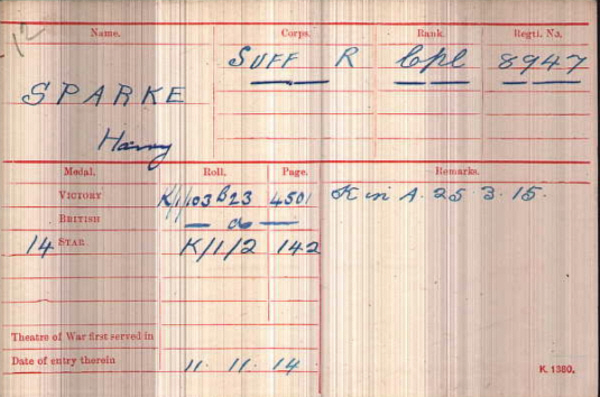 12
Name. Corps. Rank. Regtl. No.
SUFF R Cpl 8947
SPARKE
Harry
Medal. Roll. Page. Remarks.
VICTORY K/1/103 B23 4501 K in A. 25. 3. 15.
BRITISH — do —
14 STAR K/1/2 142
Theatre of War first served in
Date of entry therein 11. 11. 14
K 1380.